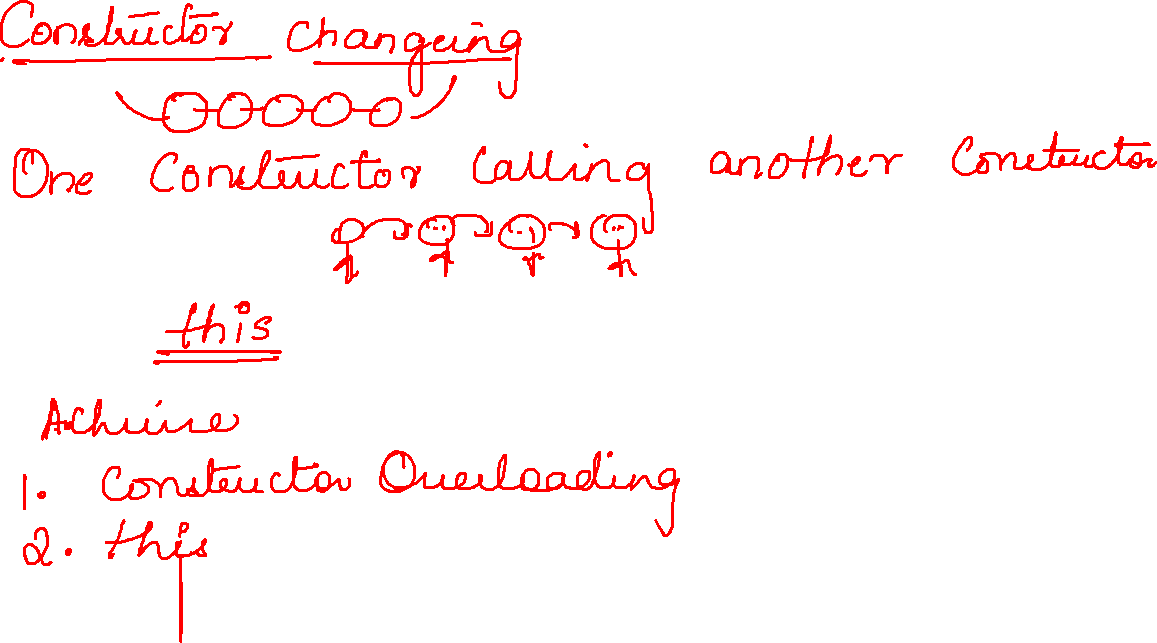 Constructor Changeing
One Constructor Calling another Constructor
this
Achieve
1. Constructor Overloading
2. this